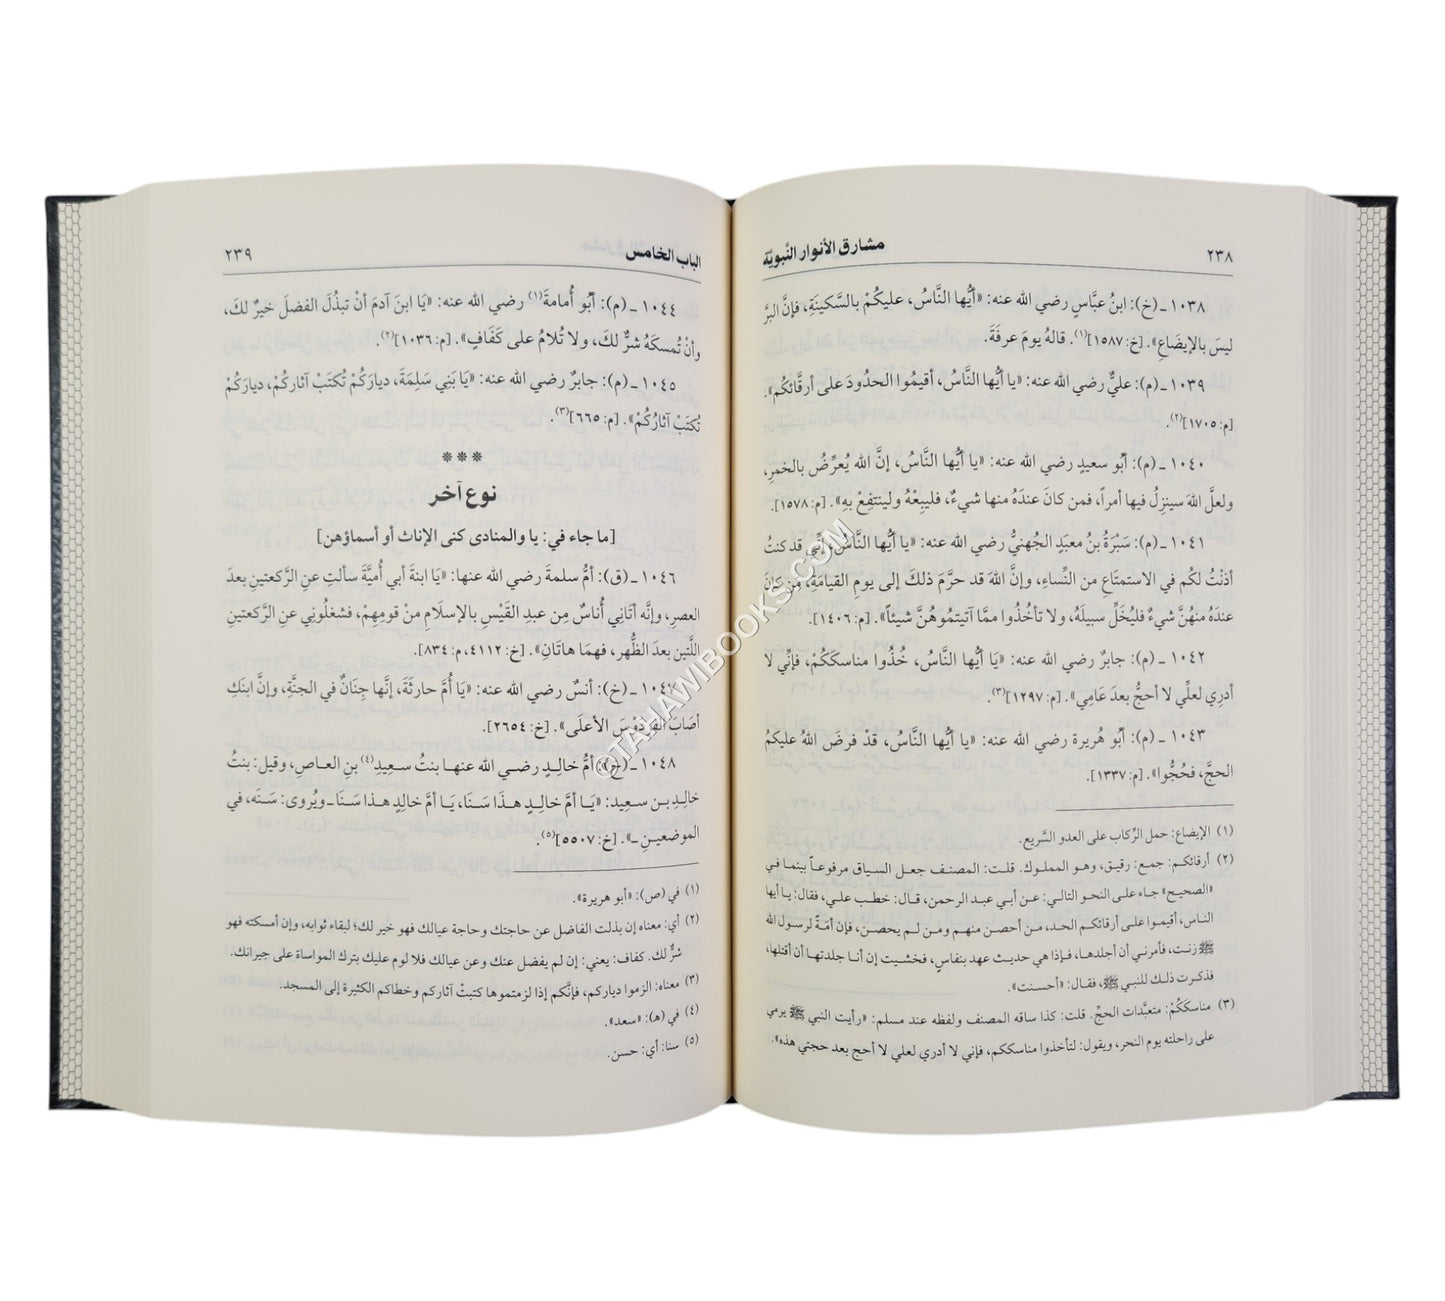 ٢٣٨ مشارق الأنوار النَّبويَّة
١٠٣٨ ـ (خ): ابنُ عبَّاسٍ رضي الله عنه: «أيُّها النَّاسُ، عليكُمْ بالسَّكينَةِ، فإنَّ البرَّ
ليسَ بالإيضَاعِ». [خ: ١٥٨٧](١). قالهُ يومَ عرفَةَ.
١٠٣٩ ـ (م): عليٌّ رضي الله عنه: «يا أيُّها النَّاسُ، أقيمُوا الحدُودَ على أرقَّائكُم».
[م: ١٧٠٥](٢).
١٠٤٠ ـ (م): أبُو سعيدٍ رضي الله عنه: «يا أيُّها النَّاسُ، إنَّ اللهَ يُعرِّضُ بالخمرِ،
ولعلَّ اللهَ سينزِلُ فيها أمراً، فمن كانَ عندَهُ منها شيءٌ، فليبِعْهُ ولينتفِعْ بهِ». [م: ١٥٧٨].
١٠٤١ ـ (م): سَبْرَةُ بنُ معبَدٍ الجُهنيُّ رضي الله عنه: «يا أيُّها النَّاسُ، إنِّي قد كنتُ
أذنْتُ لكُم في الاستمتَاعِ من النِّساءِ، وإنَّ اللهَ قد حرَّمَ ذلكَ إلى يومِ القيامَةِ، مَن كانَ
عندَهُ منهُنَّ شيءٌ فليُخَلِّ سبيلَهُ، ولا تأخُذُوا ممَّا آتيتمُوهُنَّ شيئاً». [م: ١٤٠٦].
١٠٤٢ ـ (م): جابرٌ رضي الله عنه: «يَا أيُّها النَّاسُ، خُذُوا مناسكَكُمْ، فإنِّي لا
أدرِي لعلِّي لا أحجُّ بعدَ عَامِي». [م: ١٢٩٧](٣).
١٠٤٣ ـ (م): أبُو هُريرة رضي الله عنه: «يا أيُّها النَّاسُ، قدْ فرضَ اللهُ عليكمُ
الحجَّ، فحُجُّوا». [م: ١٣٣٧].
(١) الإيضاع: حمل الرِّكاب على العدو السَّريع.
(٢) أرقائكم: جمع: رقيق، وهو المملوك. قلت: المصنف جعل السياق مرفوعاً بينما في
«الصحيح» جاء على النحو التالي: عن أبي عبد الرحمن، قال: خطب علي، فقال: يا أيها
الناس، أقيموا على أرقائكم الحد، من أحصن منهم ومن لم يحصن، فإن أمَةً لرسول الله
ﷺ زنت، فأمرني أن أجلدها، فإذا هي حديث عهد بنفاس، فخشيت إن أنا جلدتها أن أقتلها،
فذكرت ذلك للنبي ﷺ، فقال: «أحسنت».
(٣) مناسككُمْ: متعبَّدات الحجِّ. قلت: كذا ساقه المصنف ولفظه عند مسلم: «رأيت النبي ﷺ يرمي
على راحلته يوم النحر، ويقول: لتأخذوا مناسككم، فإني لا أدري لعلي لا أحج بعد حجتي هذه».
الباب الخامس ٢٣٩
١٠٤٤ ـ (م): أبُو أُمامةَ(١) رضي الله عنه: «يَا ابنَ آدمَ أنْ تبذُلَ الفضلَ خيرٌ لكَ،
وأنْ تُمسكَهُ شرٌّ لكَ، ولا تُلامُ على كَفَافٍ». [م: ١٠٣٦](٢).
١٠٤٥ ـ (م): جابرٌ رضي الله عنه: «يَا بَنِي سَلِمَةَ، ديارَكُمْ تُكتَبْ آثاركُمْ، ديارَكُمْ
تُكتَبْ آثَارُكُمْ». [م: ٦٦٥](٣).
***
نوع آخر
[ما جاء في: يا والمنادى كنى الإناث أو أسماؤهن]
١٠٤٦ ـ (ق): أمُّ سلمةَ رضي الله عنها: «يَا ابنةَ أبي أُميَّةَ سألتِ عنِ الرَّكعتينِ بعدَ
العصرِ، وإنَّه أتَانِي أُناسٌ مِن عبدِ القَيْسِ بالإسلَامِ منْ قومِهِمْ، فشغلُونِي عنِ الرَّكعتينِ
اللَّتينِ بعدَ الظُّهرِ، فهمَا هاتَانِ». [خ: ٤١١٢، م: ٨٣٤].
١٠٤٧ ـ (خ): أنسٌ رضي الله عنه: «يَا أُمَّ حارثَةَ، إنَّها جِنَانٌ في الجنَّةِ، وإنَّ ابنَكِ
أصَابَ الفِردَوْسَ الأعلَى». [خ: ٢٦٥٤].
١٠٤٨ ـ (خ): أمُّ خالِدٍ رضي الله عنها بنتُ سعِيدِ(٤) بنِ العاصِ، وقيل: بنتُ
خالِدِ بن سعِيد: «يَا أمَّ خالِدٍ هذَا سَنَا، يَا أمَّ خالِدٍ هذا سَنَا ـ ويُروى: سَنَه، في
الموضعينِ ـ». [خ: ٥٥٠٧](٥).
(١) في (ص): «أبو هريرة».
(٢) أي: معناه إن بذلت الفاضل عن حاجتك وحاجة عيالك فهو خير لك؛ لبقاء ثوابه، وإن أمسكته فهو
شرٌّ لك. كفاف: يعني: إن لم يفضل عنك وعن عيالك فلا لوم عليك بترك المواساة على جيرانك.
(٣) معناه: الزموا دياركم، فإنَّكم إذا لزمتموها كتبتْ آثاركم وخطاكم الكثيرة إلى المسجد.
(٤) في (هـ): «سعد».
(٥) سنا: أي: حسن.
©TAHAWIBOOKS.COM